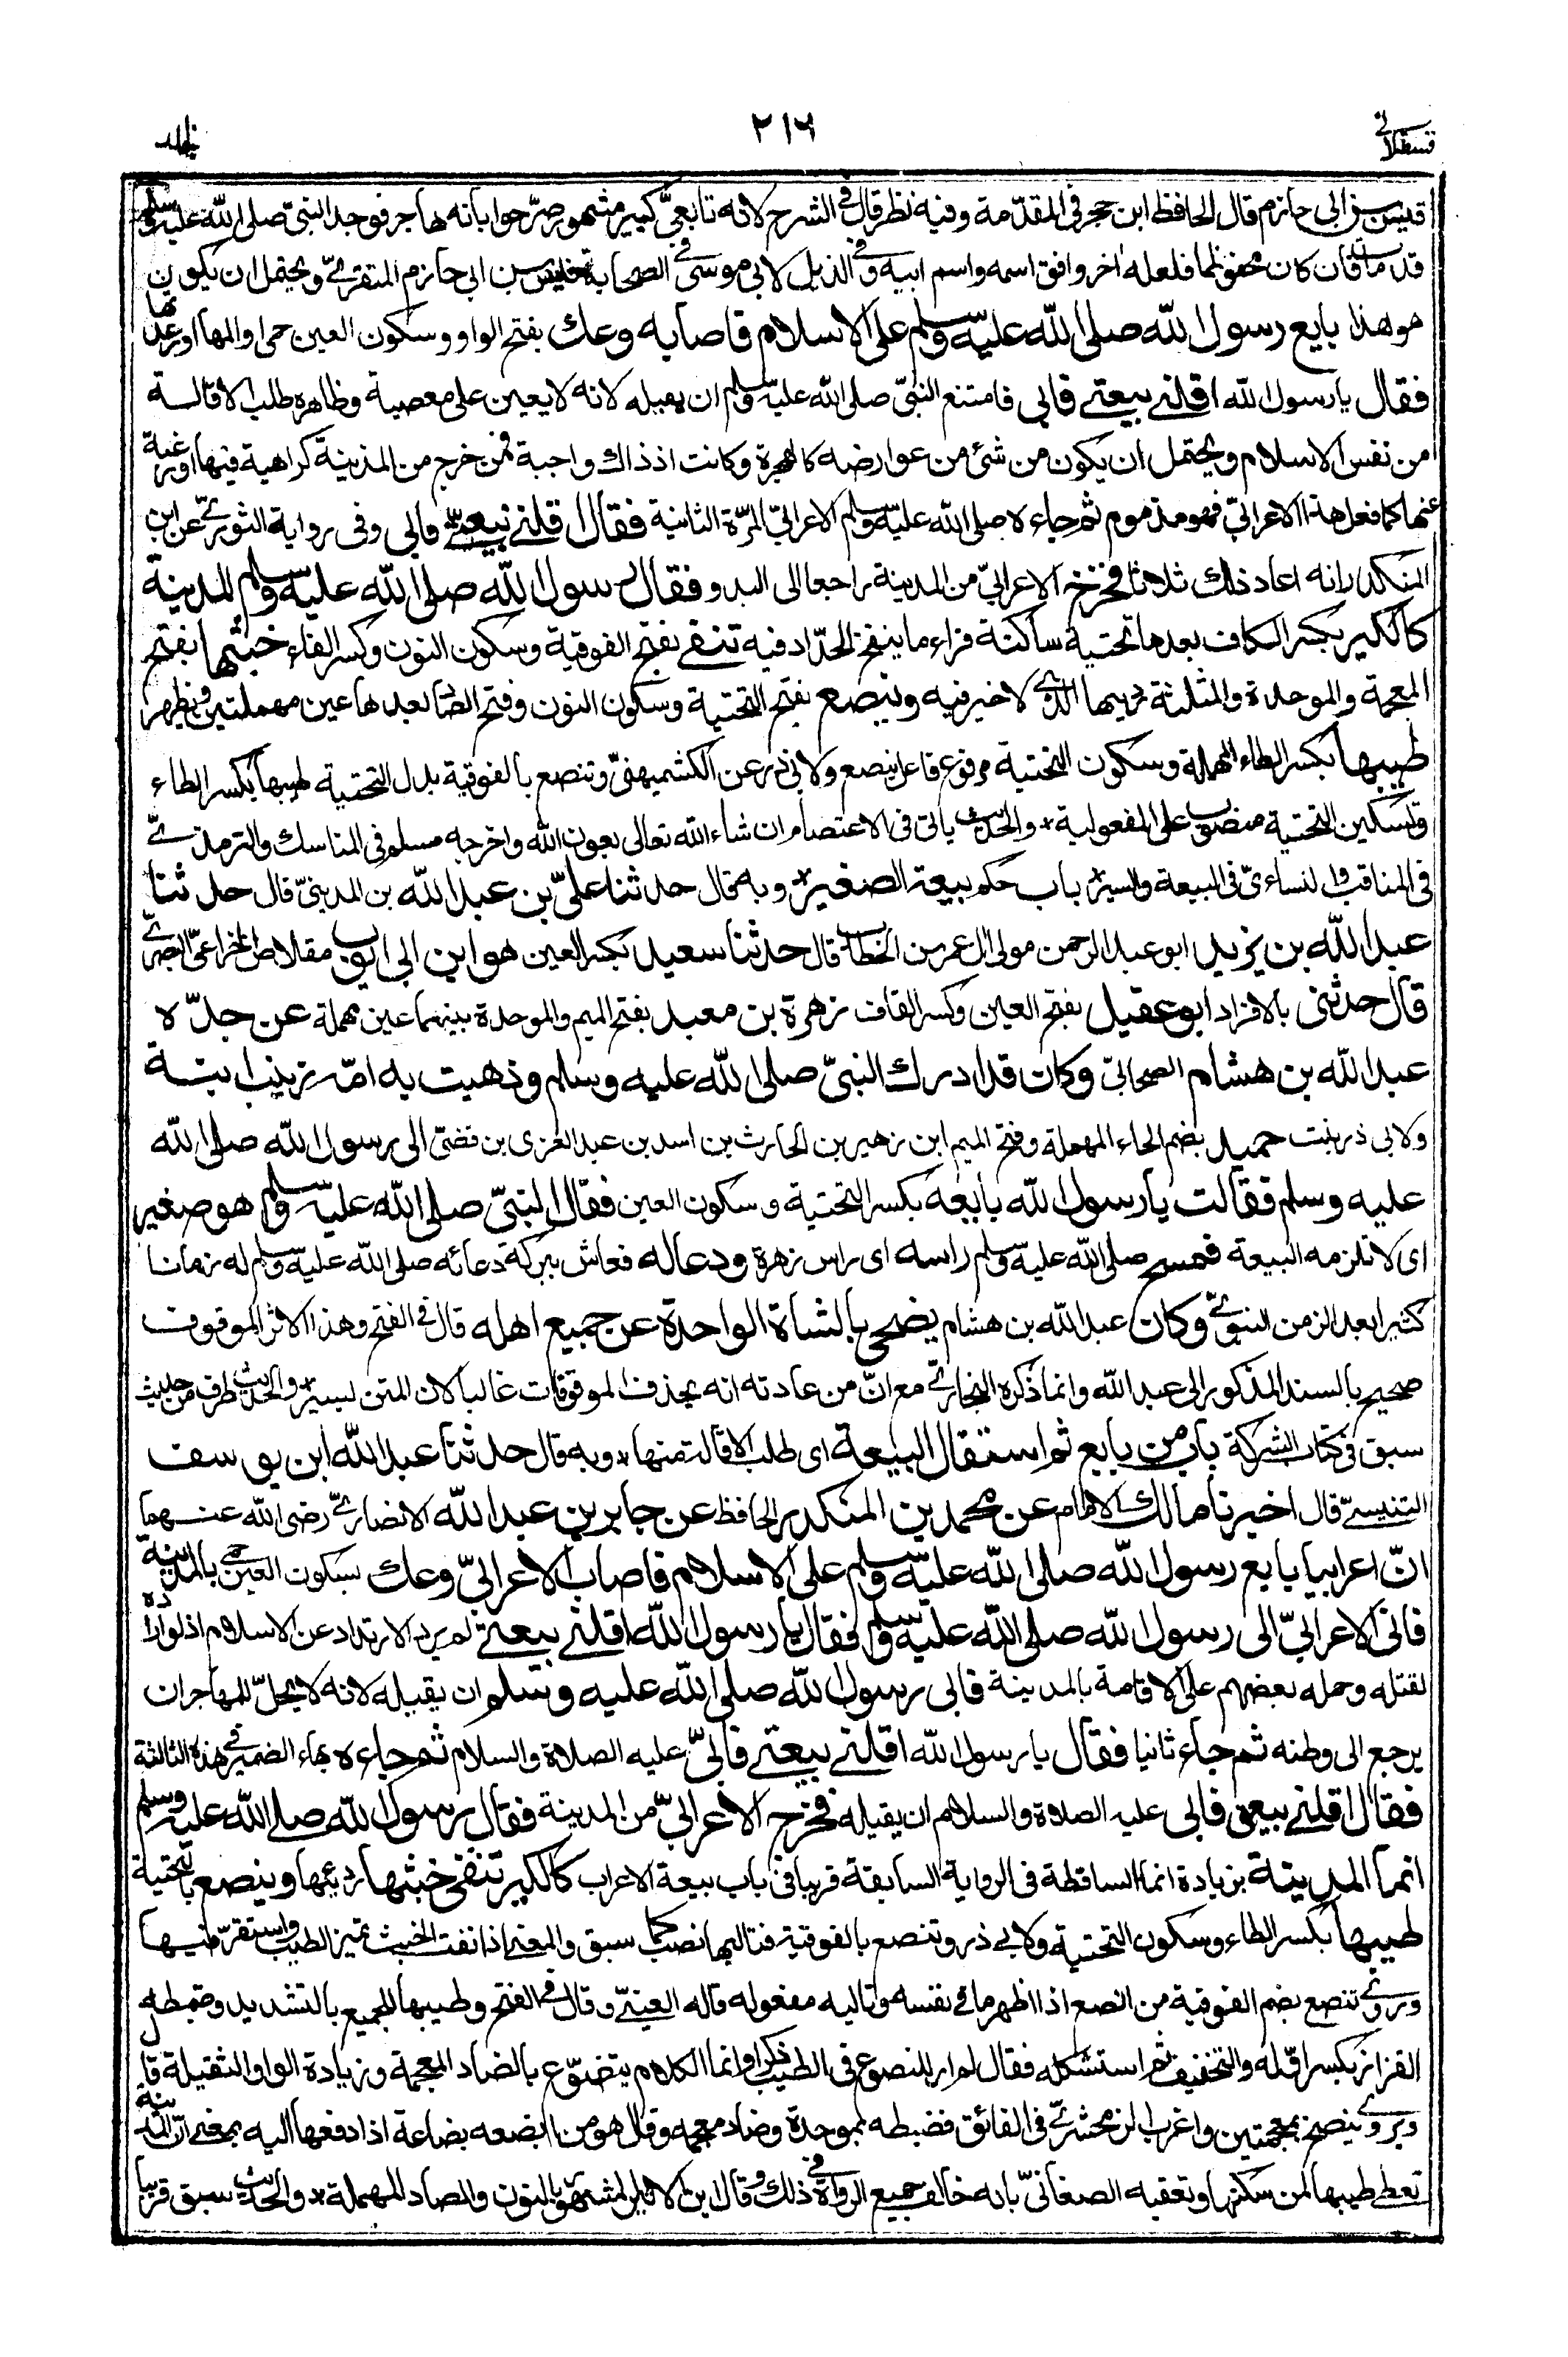 قسطلانى
٢١٦
جلد
قيس بن ابى حازم قال الحافظ ابن حجر فى المقدّمة وفيه نظر قال فى الشرح لانه تابعىّ كبير مشهور صرّحوا بأنه هاجر فوجد النبىّ صلى الله عليه وسلم
قد مات فان كان محفوظا فلعله اخر وافق اسمه واسم ابيه وفى الذيل لابى موسى فى الصحابة قيس بن ابى حازم المنقرىّ ويحتمل ان يكون
هو هذا بايع رسول الله صلى الله عليه وسلم على الاسلام فاصابه وعك بفتح الواو وسكون العين حمى او المها او رعدتها
فقال يا رسول الله اقلنى بيعتى فابى فامتنع النبىّ صلى الله عليه وسلم ان يقيله لانه لا يعين على معصية وظاهره طلب الاقالة
من نفس الاسلام ويحتمل ان يكون من شئ من عوارضه كالهجرة وكانت اذ ذاك واجبة فمن خرج من المدينة كراهية فيها او رغبة
عنها كما فعل هذا الاعرابىّ فهو مذموم ثم جاءه صلى الله عليه وسلم الاعرابىّ المرّة الثانية فقال اقلنى بيعتى فابى وفى رواية الثورىّ عن ابن
المنكدر انه اعاد ذلك ثلاثا فخرج الاعرابىّ من المدينة راجعا الى البدو فقال رسول الله صلى الله عليه وسلم المدينة
كالكير بكسر الكاف بعدها تحتية ساكنة فراء ما ينفخ الحدّاد فيه تنفى بفتح الفوقية وسكون النون وكسر الفاء خبثها بفتح
المعجمة والموحدة والمثلثة رديئها الذى لا خير فيه وينصع بفتح التحتية وسكون النون وفتح الصاد بعدها عين مهملتين ويظهر
طيبها بكسر الطاء المهملة وسكون التحتية مرفوع فاعل ينصع ولابى ذر عن الكشميهنىّ وتنصع بالفوقية بدل التحتية طيبها بكسر الطاء
وتسكين التحتية منصوب على المفعولية * والحديث ياتى فى الاعتصام ان شاء الله تعالى بعون الله واخرجه مسلم فى المناسك والترمذىّ
فى المناقب والنساءىّ فى البيعة والسير * باب حكم بيعة الصغير * وبه قال حدثنا علىّ بن عبد الله بن المدينىّ قال حدثنا
عبد الله بن يزيد ابو عبد الرحمن مولى ال عمر بن الخطاب قال حدثنا سعيد بكسر العين هو ابن ابى ايوب مقلاص الخزاعىّ البصرىّ
قال حدثنى بالافراد ابو عقيل بفتح العين وكسر القاف زهرة بن معبد بفتح الميم والموحدة بينهما عين مهملة عن جدّه
عبد الله بن هشام الصحابىّ وكان قد ادرك النبىّ صلى الله عليه وسلم وذهبت به امّه زينب ابنة
ولابى ذر بنت حميد بضم الحاء المهملة وفتح الميم ابن زهير بن الحارث بن اسد بن عبد العزى بن قصىّ الى رسول الله صلى الله
عليه وسلم فقالت يا رسول الله بايعه بكسر التحتية وسكون العين فقال النبىّ صلى الله عليه وسلم هو صغير
اى لا تلزمه البيعة فمسح صلى الله عليه وسلم راسه اى راس زهرة ودعا له فعاش ببركة دعائه صلى الله عليه وسلم له زمانا
كثيرا بعد الزمن النبوىّ وكان عبد الله بن هشام يضحى بالشاة الواحدة عن جميع اهله قال فى الفتح وهذا الاثر الموقوف
صحيح بالسند المذكور الى عبد الله وانما ذكره البخارىّ مع انّ من عادته انه يحذف الموقوفات غالبا لان المتن يسير * والحديث طرف من حديث
سبق فى كتاب الشركة باب من بايع ثم استقال البيعة اى طلب الاقالة منها * وبه قال حدثنا عبد الله ابن يوسف
التنيسىّ قال اخبرنا مالك الامام عن محمد بن المنكدر الحافظ عن جابر بن عبد الله الانصارىّ رضى الله عنهما
انّ اعرابيا بايع رسول الله صلى الله عليه وسلم على الاسلام فاصاب الاعرابىّ وعك بسكون العين حمى بالمدينة
فاتى الاعرابىّ الى رسول الله صلى الله عليه وسلم فقال يا رسول الله اقلنى بيعتى لم يرد الارتداد عن الاسلام اذ لو اراده
لقتله وحمله بعضهم على الاقامة بالمدينة فابى رسول الله صلى الله عليه وسلم ان يقيله لانه لا يحلّ للمهاجر ان
يرجع الى وطنه ثم جاء ثانيا فقال يا رسول الله اقلنى بيعتى فابىّ عليه الصلاة والسلام ثم جاءه بهاء الضمير فى هذه الثالثة
فقال اقلنى بيعتى فابى عليه الصلاة والسلام ان يقيله فخرج الاعرابىّ من المدينة فقال رسول الله صلى الله عليه وسلم
انما المدينة بزيادة انما الساقطة فى الرواية السابقة قريبا فى باب بيعة الاعراب كالكير تنفى خبثها رديئها وينصع بالتحتية
طيبها بكسر الطاء وسكون التحتية ولابى ذر وتنصع بالفوقية فتاليها نصب كما سبق والمعنى اذا نفت الخبيث تميز الطيب واستقرّ فيها
وروى تنصع بضم الفوقية من انصع اذا اظهر ما فى نفسه وتاليه مفعوله قاله العينىّ وقال فى الفتح وطيبها للجميع بالتشديد وضبطه
القزاز بكسر اوّله والتخفيف ثم استشكله فقال لم ار للنصوع فى الطيب ذكرا وانما الكلام يتضوّع بالضاد المعجمة وزيادة الواو الثقيلة قال
ويروى ينضخ بمعجمتين واغرب الزمخشرىّ فى الفائق فضبطه بموحدة وضاد معجمة وقال هو من ابضعه بضاعة اذا دفعها اليه بمعنى انّ المدينة
تعطى طيبها لمن سكنها وتعقبه الصغانىّ بانه خالف جميع الرواة فى ذلك وقال ابن الاثير المشهور بالنون والصاد المهملة * والحديث سبق قريبا